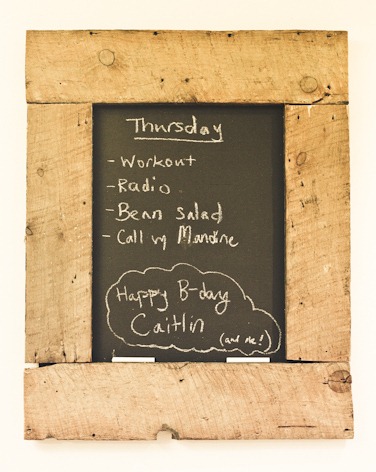 Thursday
- Workout
- Radio
- Bean salad
- Call w/ Mandine
Happy B-day
Caitlin
(and me!)